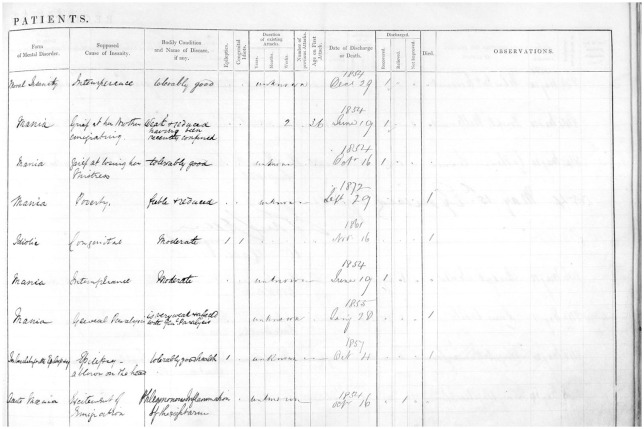 PATIENTS.
Form of Mental Disorder.
Supposed Cause of Insanity.
Bodily Condition and Name of Disease, if any.
Epileptics.
Congenital Idiots.
Duration of existing Attacks.
Years.
Months.
Weeks.
Number of previous Attacks.
Age on First Attack.
Date of Discharge or Death.
Discharged.
Recovered.
Relieved.
Not Improved.
Died.
OBSERVATIONS.
Moral Insanity Intemperance tolerably good unknown 1854 Decr 29 1
Mania Grief at her Mother emigrating Weak & reduced having been recently confined 2 36 1854 June 19 1
Mania Grief at losing her Mistress tolerably good unknown 1854 Octr 16 1
Mania Poverty feeble & reduced unknown 1872 Sept 29 1
Idiotic Congenital Moderate 1 1 1861 Novr 16 1
Mania Intemperance Moderate unknown 1854 June 19 1
Mania General Paralysis is very weak & with Genl Paralysis unknown 1855 Jany 28 1
Epilepsy a blow on the head tolerably good health 1 unknown 1857 Oct 4 1
Acute Mania Excitement of Emigration Phlegmonous Inflammation of unknown 1854 16 1